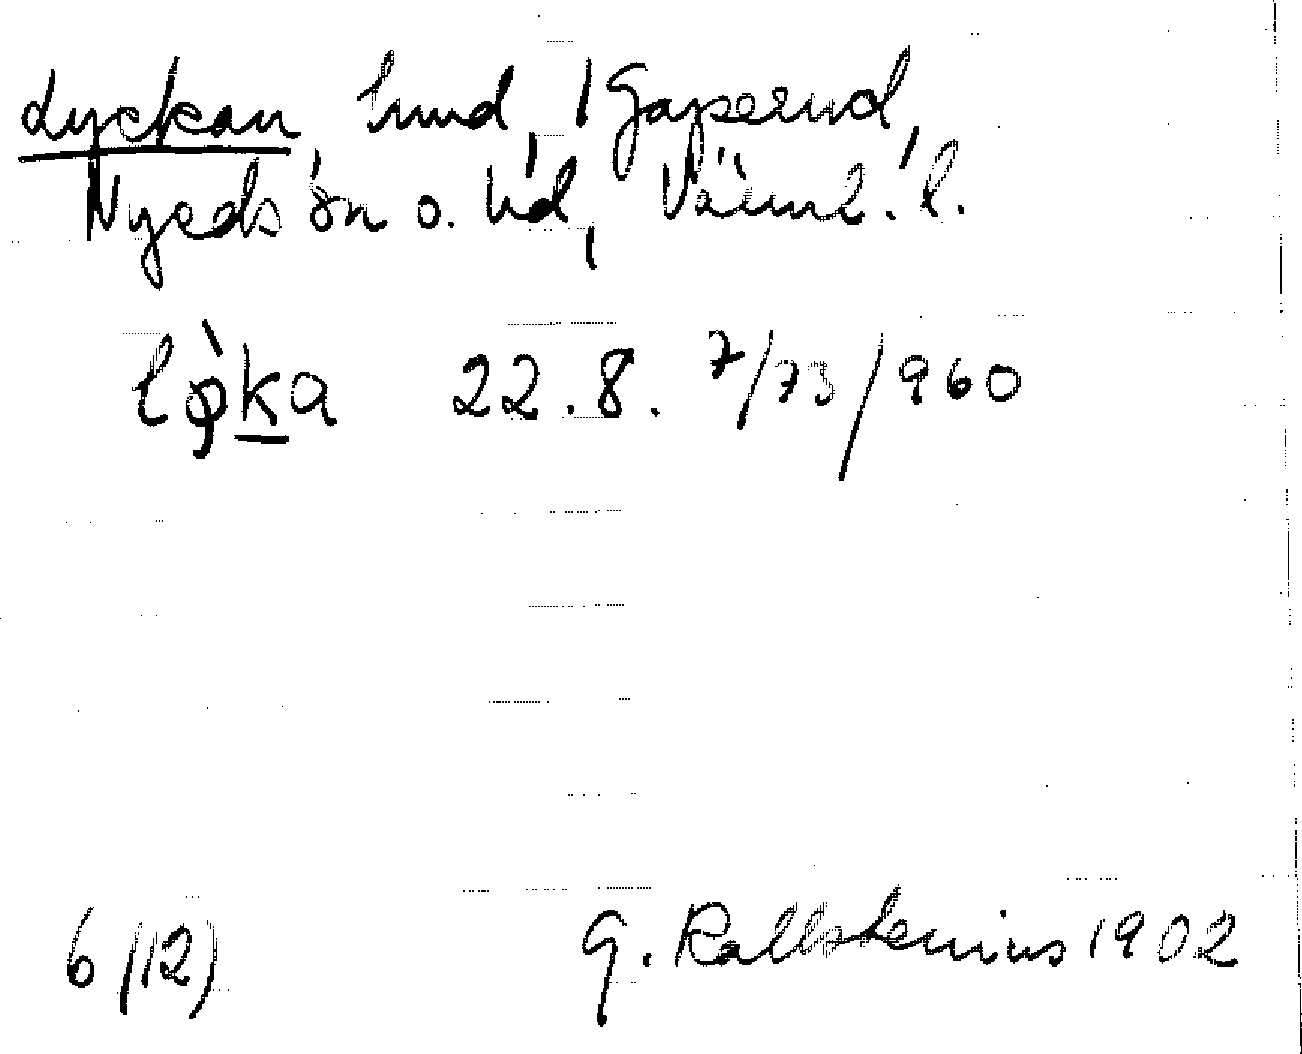 Lyckan hmd, 1 Gaperud,
Nyeds sn o. hd, Värml. l.
lø̀ka 22.8. 7/73/960
6 (12) G. Kallstenius 1902